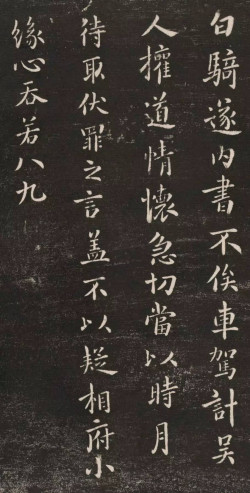 白騎遂內書不俟車駕計吴
人權道情懷急切當以時月
待取伏罪之言盖不以疑相府小
緣心吞若八九